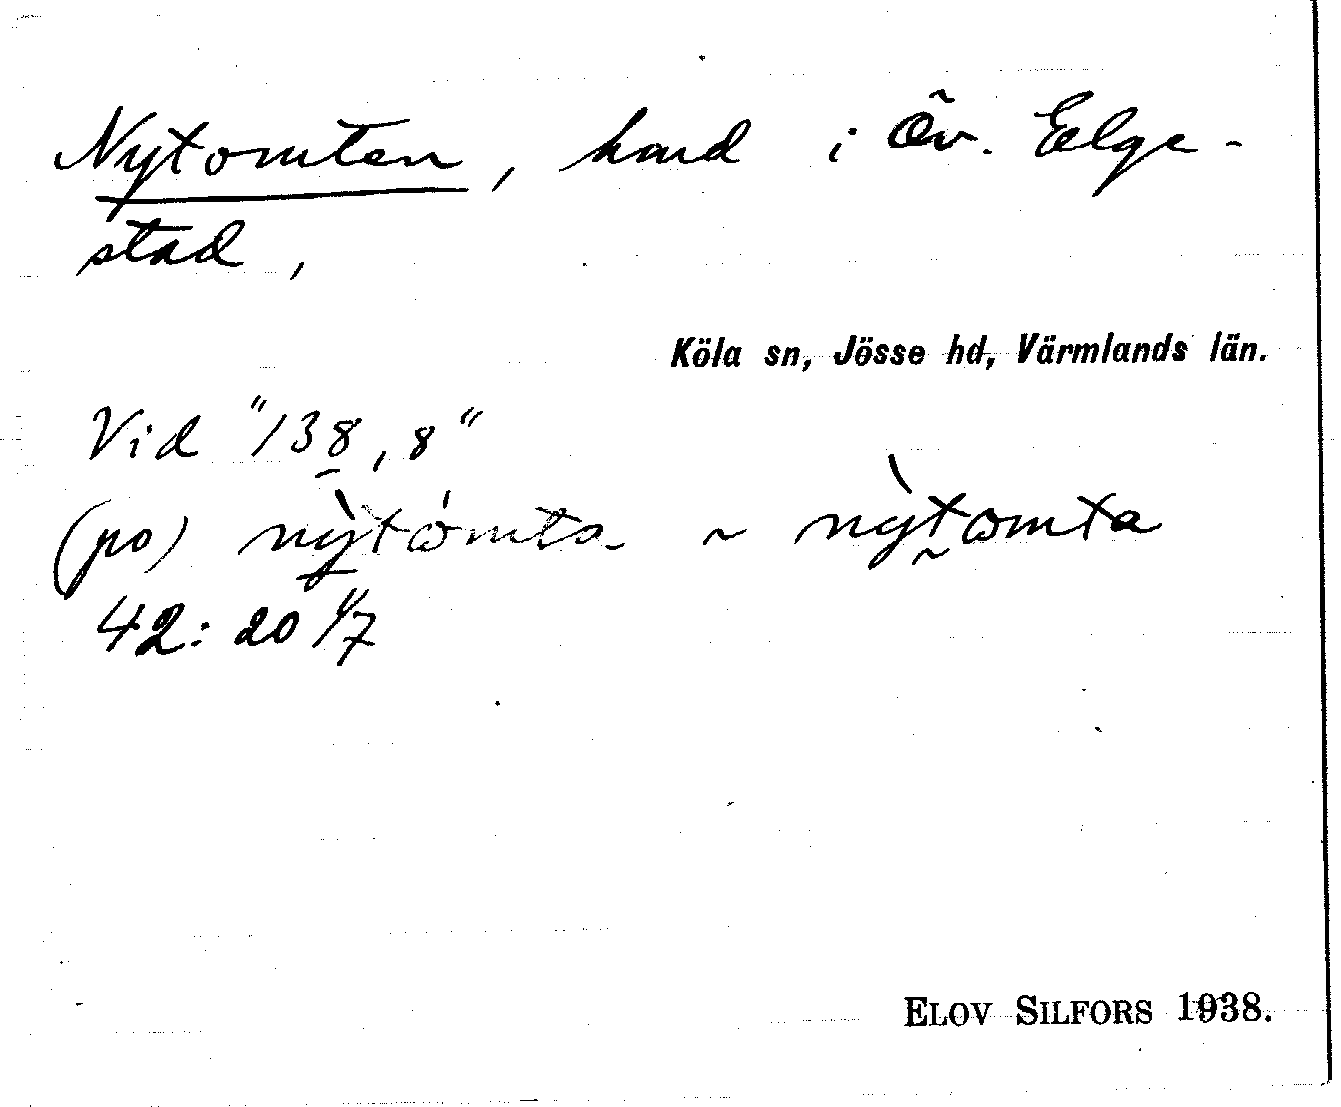 Nytomten, hmd i Öv. Elge-
stad,
Köla sn, Jösse hd, Värmlands län.
Vid "138,8"
(po) nỳtómta ~ nỳtomta
42: 20 4/7
ELOV SILFORS 1938.